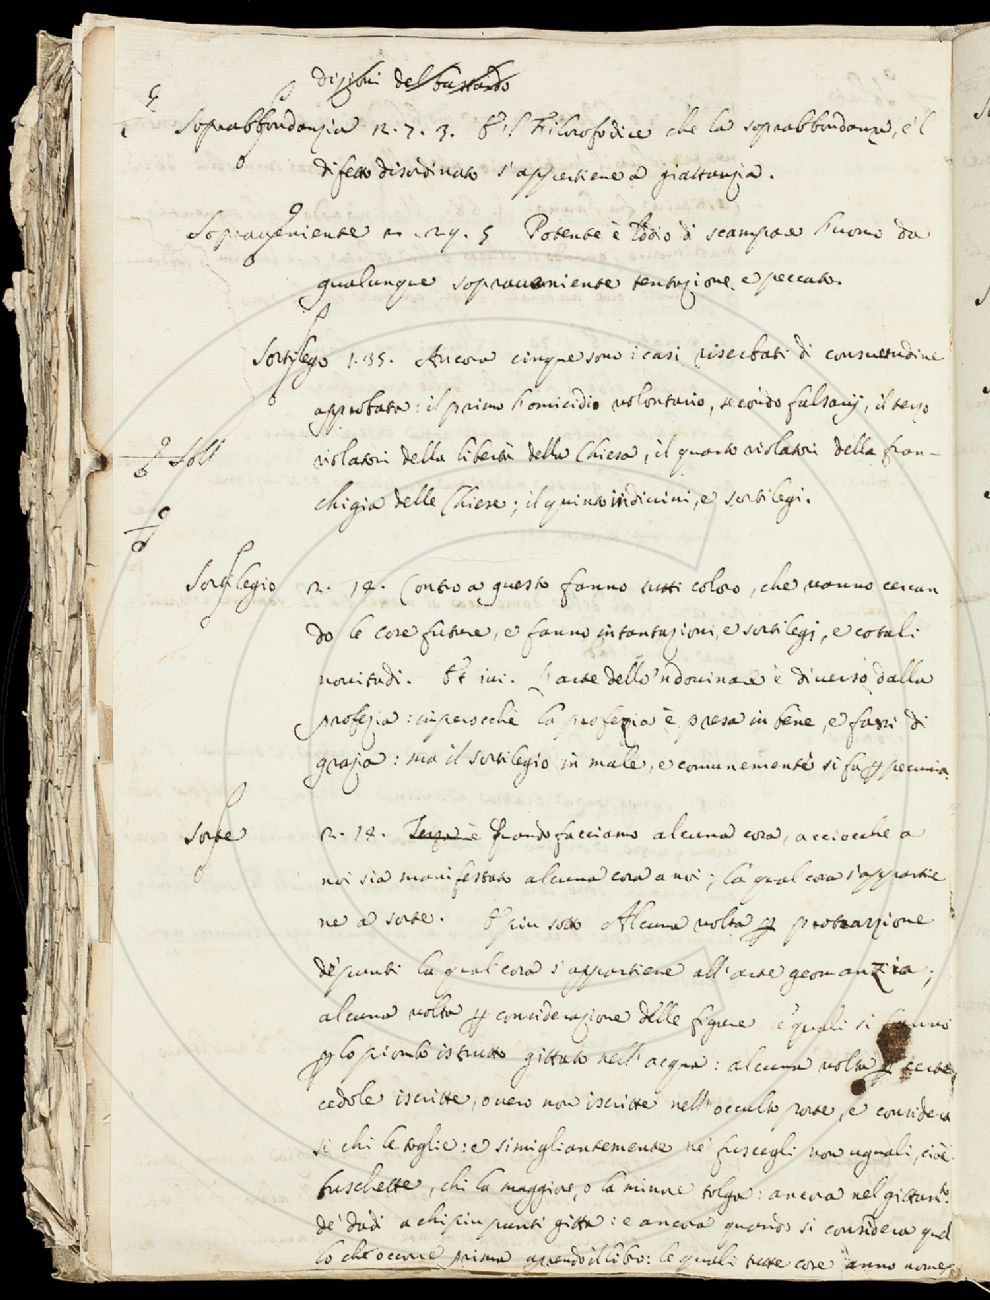 dizioni del bastardo
Soprabbondanzia 12. 7. 3. E 'l Filosofo dice che la soprabbondanza, e 'l
difetto disordinato s'appertiene a giattanzia.
Sopraveniente 29. 5 Potente è Iddio di scampare huomo da
qualunque sopraveniente tentazione, e peccato.
Sortilego 1. 35. Ancora cinque sono i casi riserbati di consuetudine
approbata: il primo homicidio volontario, secondo falsarij, il terzo
Soll violatori della libertà della Chiesa, il quarto violatori della fran-
chigia delle Chiese; il quinto indivini, e sortilegi.
Sortilegio 2. 14. Contro a questo fanno tutti coloro, che vanno cercan
do le cose future, e fanno incantazioni, e sortilegj, e cotali
novitadi. Et ivi. L'arte dello 'ndovinare è diverso dalla
profezia: imperocchè la profezia è presa in bene, e fassi di
grazia: ma il sortilegio in male, e comunemente si fa p pecunia.
Sorte 2. 14. Terza è Quando facciamo alcuna cosa, acciocchè a
noi sia manifestato alcuna cosa a noi; la qual cosa s'appartie
ne a sorte. E più sotto Alcuna volta p protrazzione
de' punti la qual cosa s'appartiene all'arte geomanzia;
alcuna volta p considerazione delle figure le quali si fanno
p lo piombo istrutto gittato nell'acqua: alcuna volta p certe
cedole iscritte, overo non iscritte nell'occulto poste, e considera
si chi le toglie: e simigliantemente ne' fuscegli non uguali, cioè
buschette, chi la maggiore, o la minore tolga: ancora nel gittare
de' dadi a chi più punti gitta: e ancora quando si considera quel
lo che occorre prima aprendo il libro: le quali tutte cose anno nome